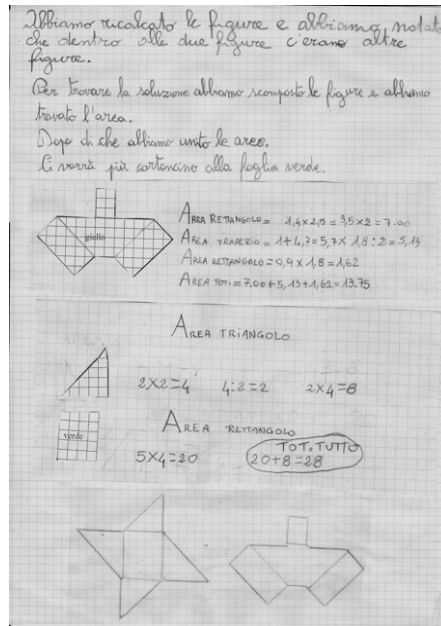 Abbiamo ricalcato le figure e abbiamo notato
che dentro alle due figure c'erano altre
figure.
Per trovare la soluzione abbiamo scomposto le figure e abbiamo
trovato l'area.
Dopo di che abbiamo unito le aree.
Ci vorrà più cartoncino alla foglia verde.
giallo
AREA RETTANGOLO = 1,4 x 2,5 = 3,5 x 2 = 7.00
AREA TRAPEZIO = 1+4,7 = 5,7 x 1,8 : 2 = 5,13
AREA RETTANGOLO = 0,9 x 1,8 = 1,62
AREA TOT. = 7,00 + 5,13 + 1,62 = 13.75
AREA TRIANGOLO
2x2=4 4:2=2 2x4=8
AREA RETTANGOLO
verde
5x4=20
TOT. TUTTO
20+8=28